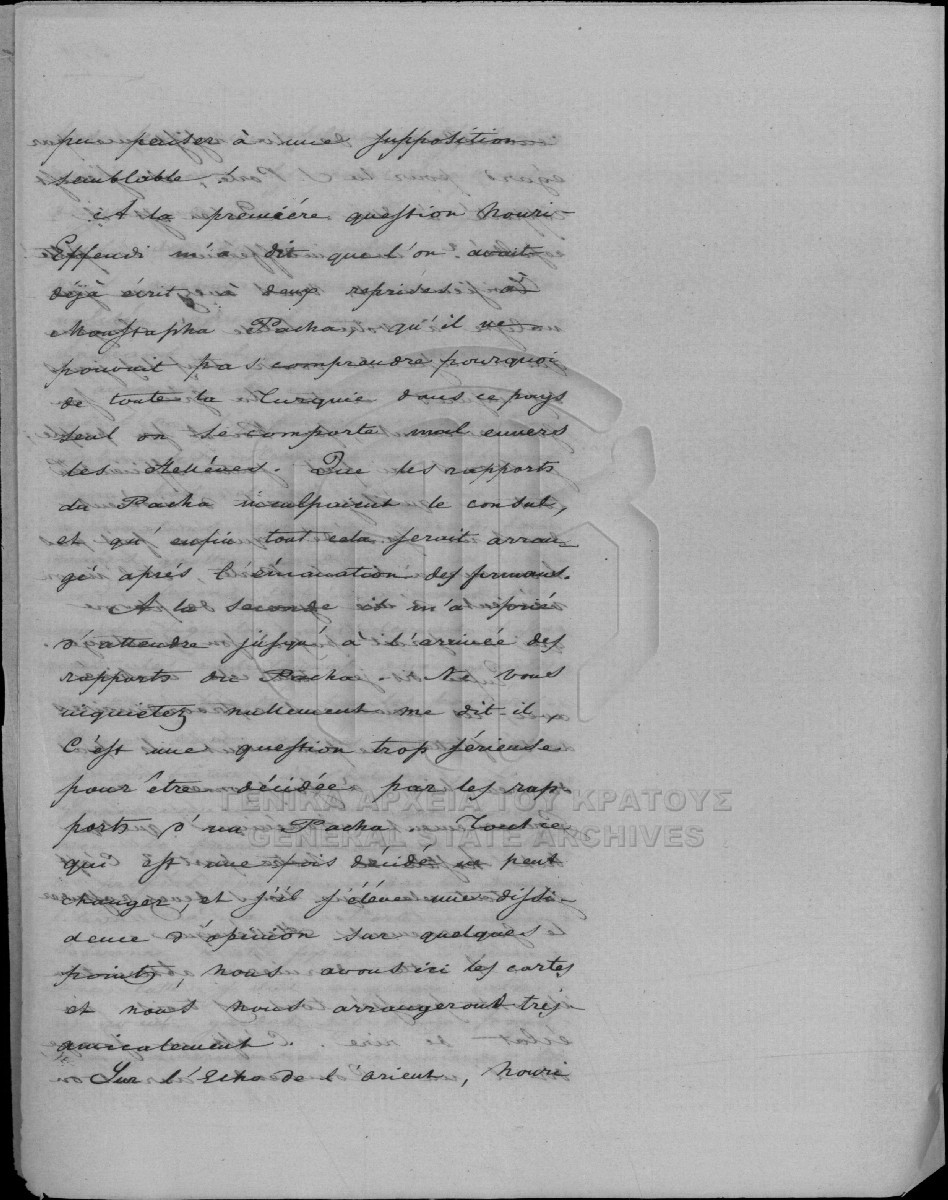 pu penser à une supposition
semblable.
A la première question Nouri-
Effendi m'a dit que l'on avait
déjà écrit à deux reprises à
Moustapha Pacha, qu'il ne
pouvait pas comprendre pourquoi
de toute la Turquie dans ce pays
seul on se comporte mal envers
les Hellénes. Que les rapports
du Pacha inculpaient le consul,
et qu'enfin tout cela serait arran-
gé aprés l'émanation des firmans.
A la seconde il m'a prié
d'attendre jusqu'à l'arrivée des
rapports du Pacha. Ne vous
inquietez nullement me dit il,
C'est une question trop sérieuse
pour être décidée par les rap-
ports d'un Pacha. Tout ce
qui est une fois décidé ne peut
changer, et s'il s'éléve une dissi-
dence d'opinion sur quelques
points, nous avons ici les cartes
et nous nous arrangerons trés
amicalement.
Sur l'Echo de l'orient, Nouri
ΓΕΝΙΚΑ ΑΡΧΕΙΑ ΤΟΥ ΚΡΑΤΟΥΣ
GENERAL STATE ARCHIVES